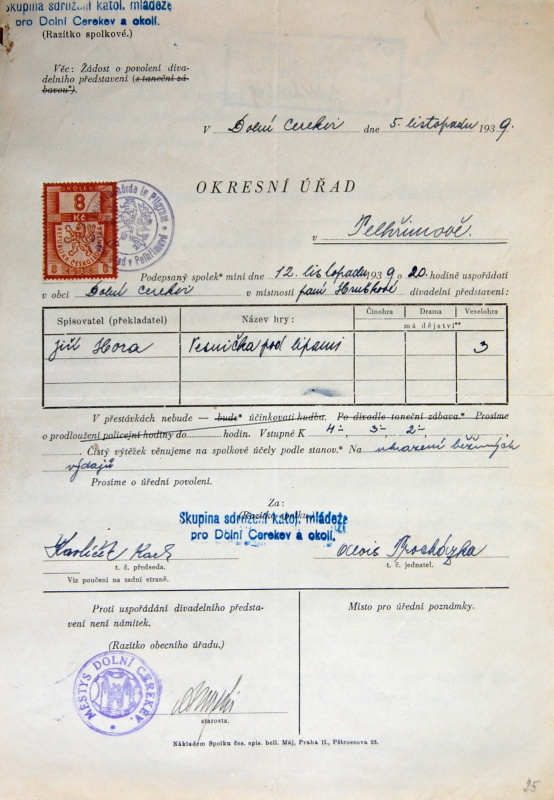 Skupina sdružení katol. mládeže
pro Dolní Cerekev a okolí.
(Razítko spolkové.)
Věc: Žádost o povolení diva-
delního představení (s taneční zá-
bavou*).
V Dolní Cerekvi dne 5. listopadu 1939.
OKRESNÍ ÚŘAD
v Pelhřimově.
8
Kč
Podepsaný spolek* míní dne 12. listopadu 1939 o 20. hodině uspořádati
v obci Dolní Cerekvi v místnosti paní Hruškové divadelní představení:
Spisovatel (překladatel) Název hry: Činohra Drama Veselohra
má dějství**
Jiří Hora Vesnička pod lipami 3
V přestávkách nebude — bude* účinkovati hudba. Po divadle taneční zábava.* Prosíme
o prodloužení policejní hodiny do hodin. Vstupné K 4·-, 3·-, 2·-
Čistý výtěžek věnujeme na spolkové účely podle stanov.* Na uhrazení běžných
výdajů
Prosíme o úřední povolení.
Za:
(Razítko spolku)
Skupina sdružení katol. mládeže
pro Dolní Cerekev a okolí.
Karlíček Karel Alois Procházka
t. č. předseda. t. č. jednatel.
Viz poučení na zadní straně.
Proti uspořádání divadelního předsta-
vení není námitek.
Místo pro úřední poznámky.
(Razítko obecního úřadu.)
MĚSTYS DOLNÍ CEREKEV.
starosta.
Nákladem Spolku čes. spis. bell. Máj, Praha II., Pštrossova 23.
25